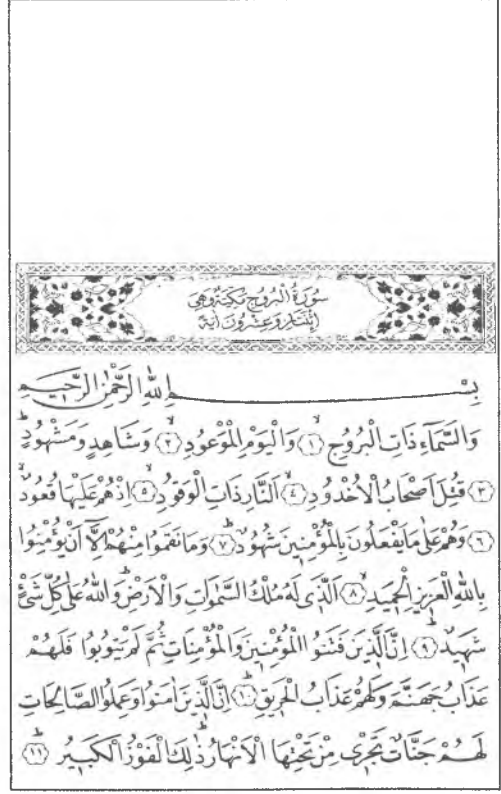 سُورَةُ الْبُرُوجِ مَكِّيَّةٌ وَهِيَ
اِثْنَتَانِ وَعِشْرُونَ اٰيَةً
بِسْمِ اللّٰهِ الرَّحْمٰنِ الرَّحِيمِ
وَالسَّمَاءِ ذَاتِ الْبُرُوجِ ﴿١﴾ وَالْيَوْمِ الْمَوْعُودِ ﴿٢﴾ وَشَاهِدٍ وَمَشْهُودٍ
﴿٣﴾ قُتِلَ اَصْحَابُ الْاُخْدُودِ ﴿٤﴾ اَلنَّارِ ذَاتِ الْوَقُودِ ﴿٥﴾ اِذْ هُمْ عَلَيْهَا قُعُودٌ
﴿٦﴾ وَهُمْ عَلٰى مَا يَفْعَلُونَ بِالْمُؤْمِنِينَ شُهُودٌ ﴿٧﴾ وَمَا نَقَمُوا مِنْهُمْ اِلَّٓا اَنْ يُؤْمِنُوا
بِاللّٰهِ الْعَزِيزِ الْحَمِيدِ ﴿٨﴾ اَلَّذِي لَهُ مُلْكُ السَّمٰوَاتِ وَالْاَرْضِ وَاللّٰهُ عَلٰى كُلِّ شَيْءٍ
شَهِيدٌ ﴿٩﴾ اِنَّ الَّذِينَ فَتَنُوا الْمُؤْمِنِينَ وَالْمُؤْمِنَاتِ ثُمَّ لَمْ يَتُوبُوا فَلَهُمْ
عَذَابُ جَهَنَّمَ وَلَهُمْ عَذَابُ الْحَرِيقِ ﴿١٠﴾ اِنَّ الَّذِينَ اٰمَنُوا وَعَمِلُوا الصَّالِحَاتِ
لَهُمْ جَنَّاتٌ تَجْرِي مِنْ تَحْتِهَا الْاَنْهَارُ ذٰلِكَ الْفَوْزُ الْكَبِيرُ ﴿١١﴾